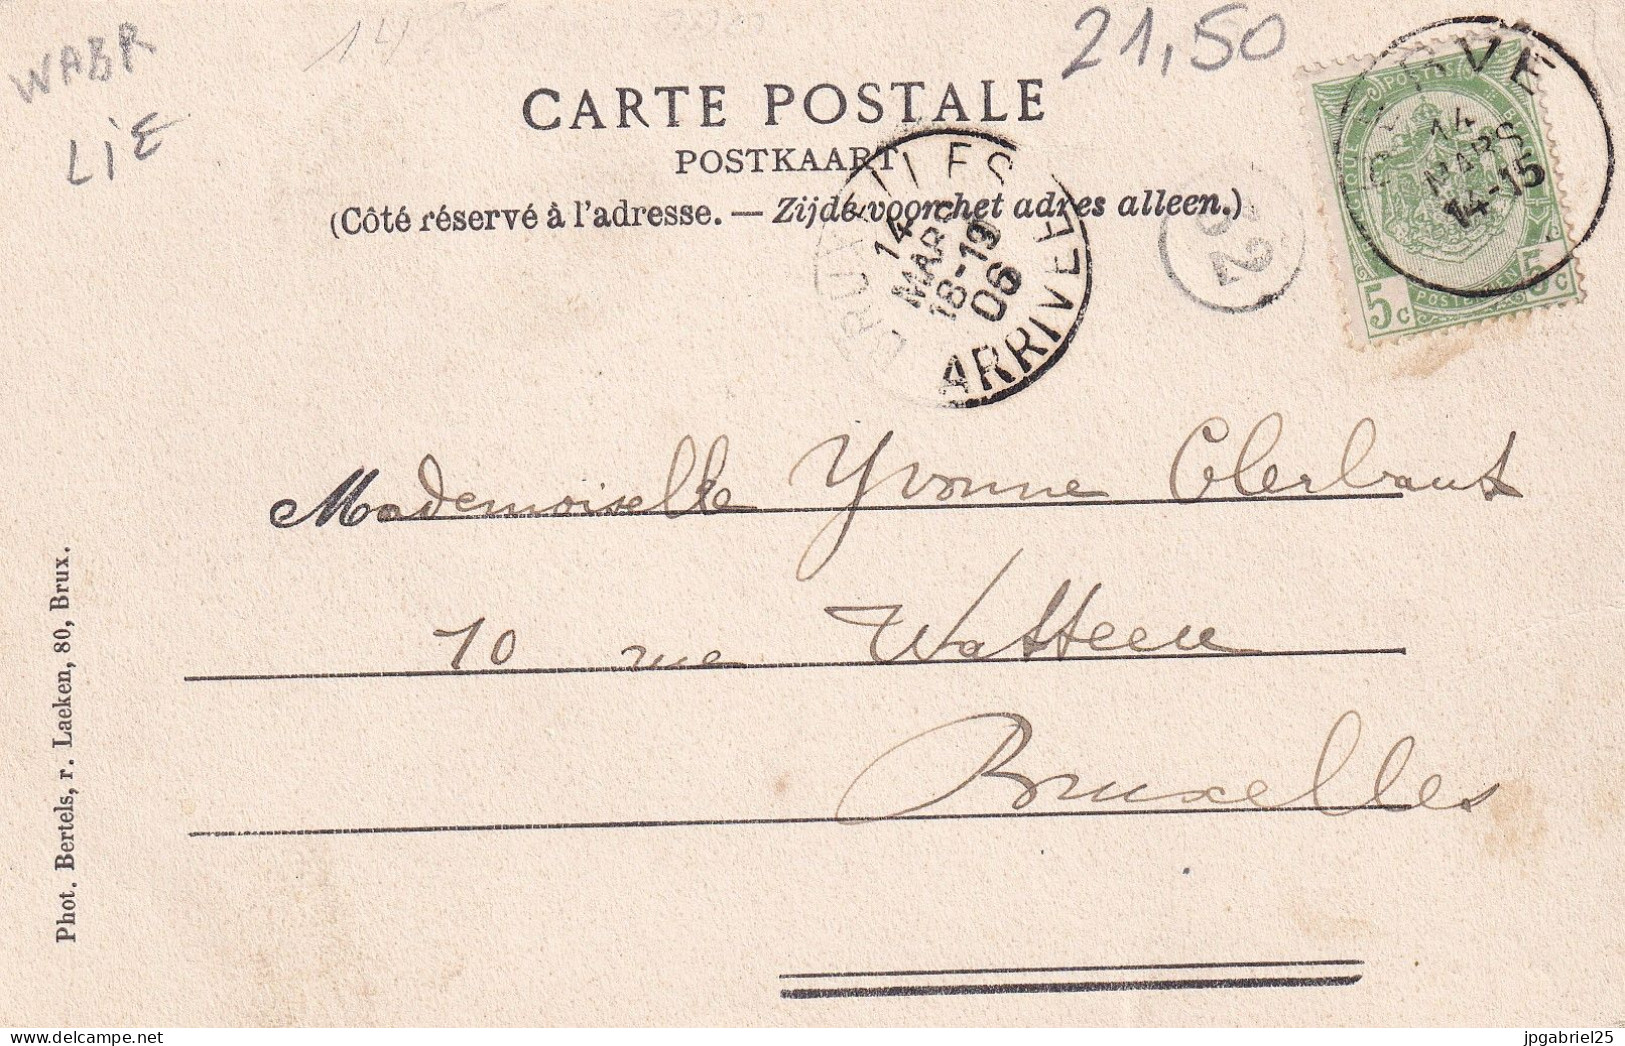 WABR
LiE
14
21,50
CARTE POSTALE
POSTKAART
(Côté réservé à l'adresse. — Zijde voor het adres alleen.)
BRUXELLES
14
MARS
18-19
06
ARRIVEE
14
MARS
14-15
POSTES
5c 5c
Mademoiselle Yvonne Clerbaut
10 rue Watteeu
Bruxelles
Phot. Bertels, r. Laeken, 80, Brux.
delcampe.net
jpgabriel25